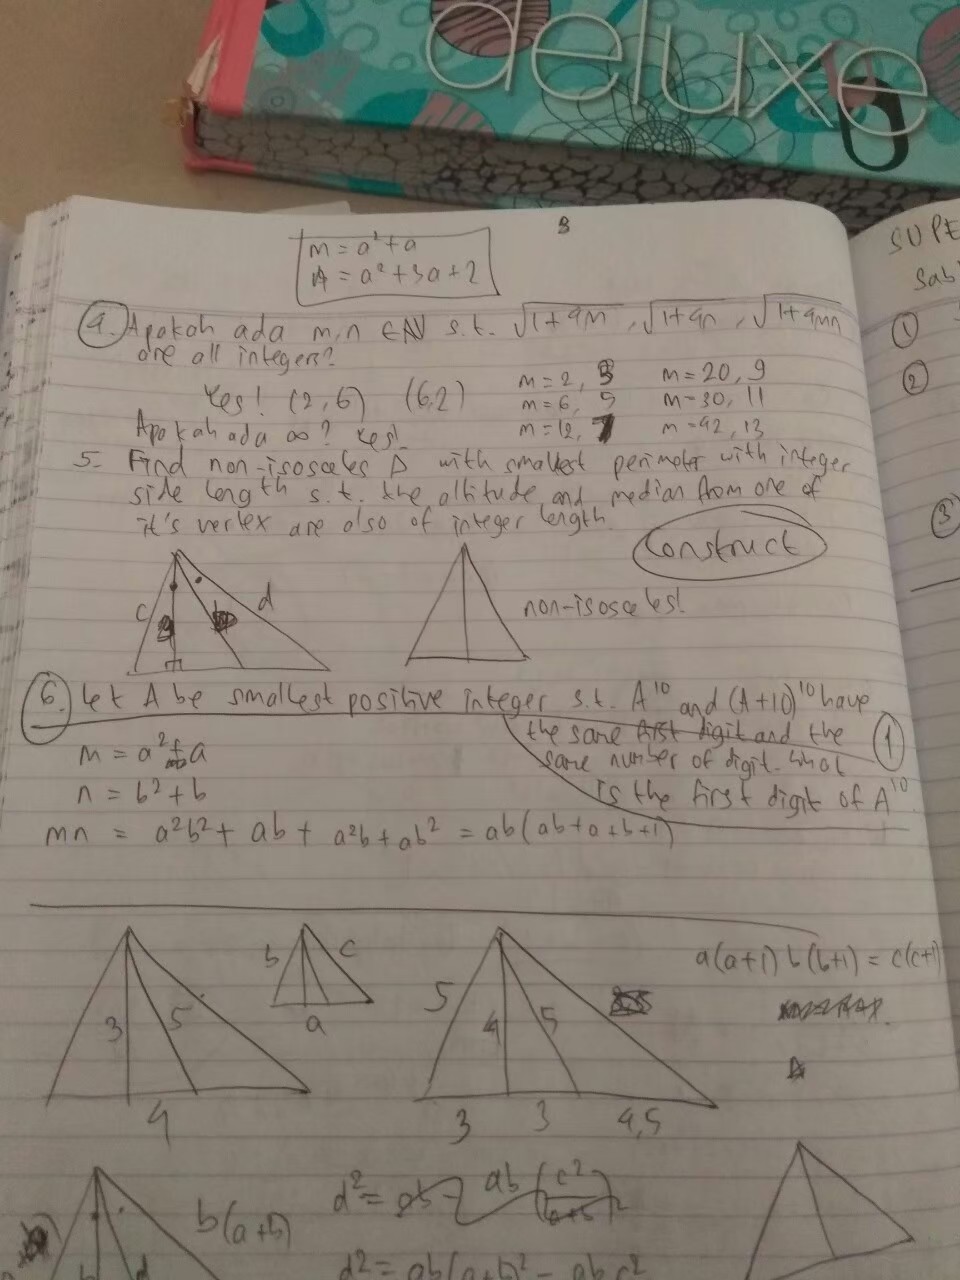 deluxe
3
m = a² + a
A = a² + 3a + 2
4. Apakah ada m, n ∈ N s.t. √1+4m, √1+4n, √1+4mn
are all integers?
Yes! (2, 6) (6, 2)
Apakah ada ∞? Yes!
m = 2, 3
m = 6, 5
m = 12, 7
m = 20, 9
m = 30, 11
m = 42, 13
5. Find non-isosceles Δ with smallest perimeter with integer
side length s.t. the altitude and median from one of
it's vertex are also of integer length.
Construct
c d
non-isosceles!
6. Let A be smallest positive integer s.t. A¹⁰ and (A+10)¹⁰ have
the same first digit and the
same number of digit. What
is the first digit of A¹⁰
1
m = a² + a
n = b² + b
mn = a²b² + ab + a²b + ab² = ab(ab+a+b+1)
3 5
4
b c
a
5 4 5
3 3 4,5
a(a+1) b(b+1) = c(c+1)
b(a+b)
d² = ab
d² = ab(a+b)² - abc²
SUPE
Sab
1
2
3